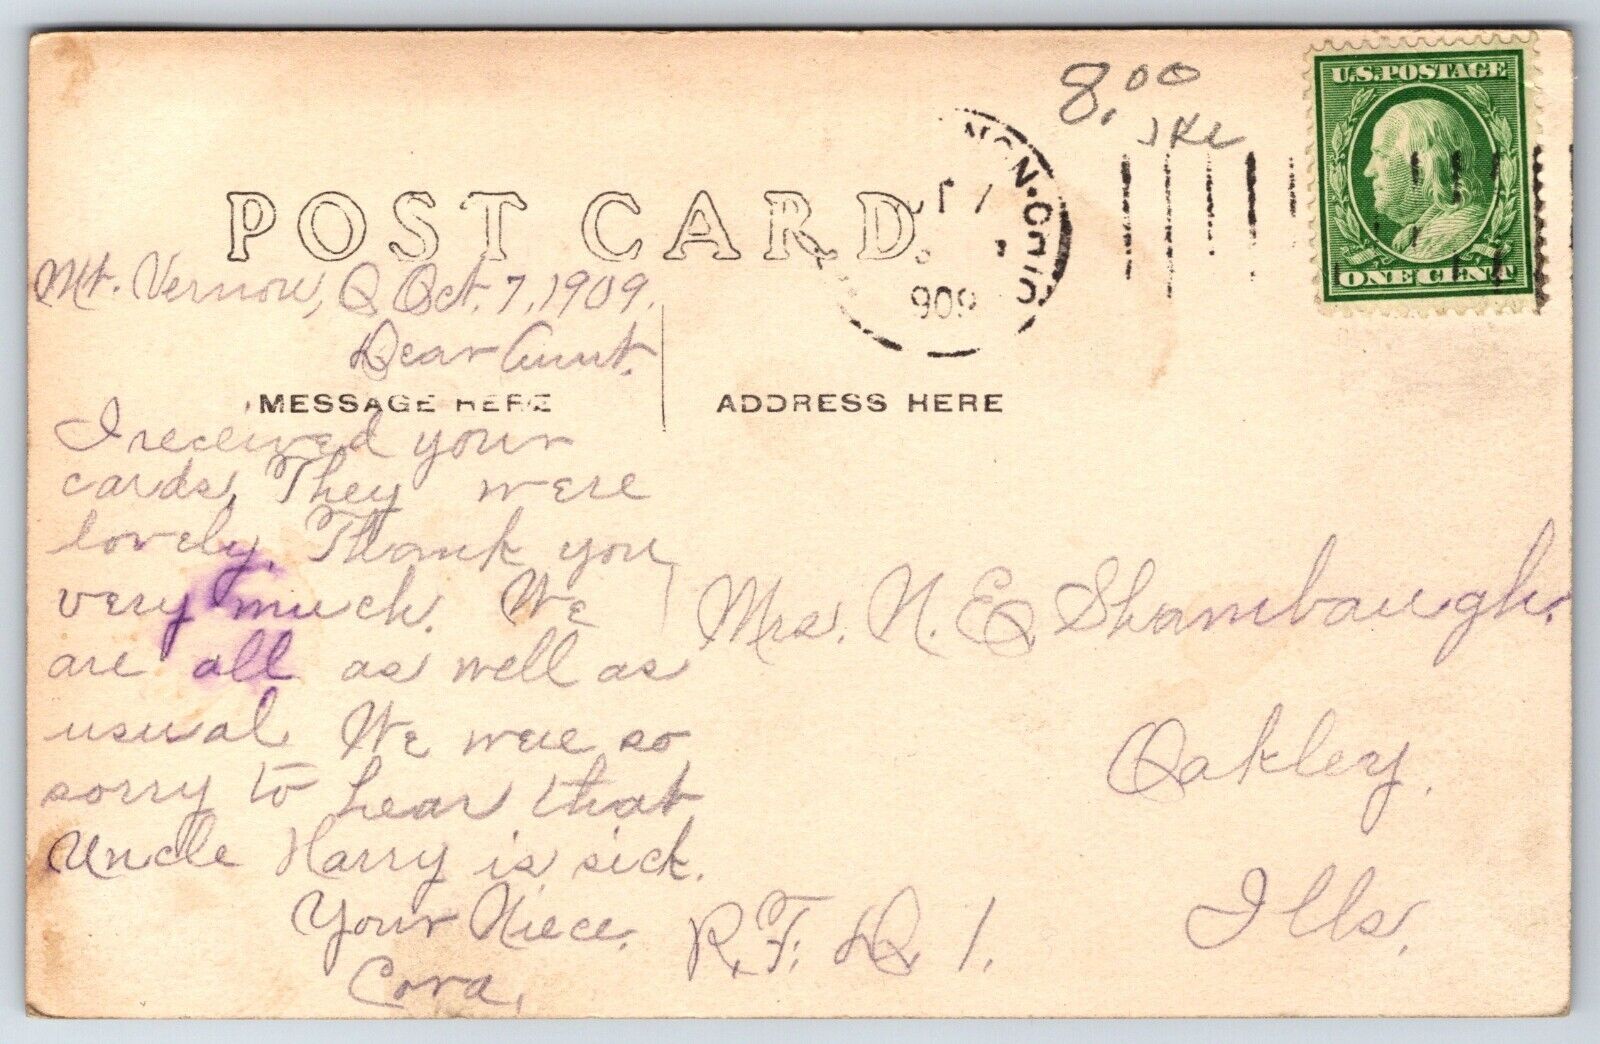 8.00
U.S. POSTAGE
ONE CENT
NON. OHIO
7
909
POST CARD.
Mt. Vernon, O Oct. 7, 1909.
Dear Aunt.
MESSAGE HERE
I received your
cards. They were
lovely. Thank you
very much. We
are all as well as
usual We were so
sorry to hear that
Uncle Harry is sick.
Your Niece.
Cora.
ADDRESS HERE
Mrs. N. E. Shambaugh.
Oakley.
Ills.
R.F.D. 1.